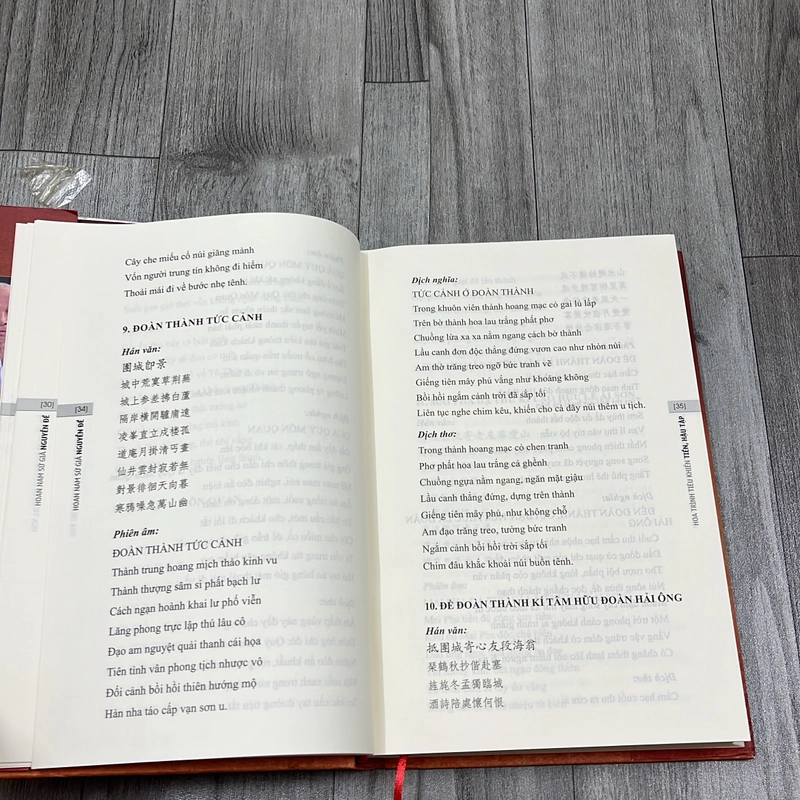 Cây che miếu cổ núi giăng mành
Vốn người trung tín không đi hiểm
Thoải mái đi về bước nhẹ tênh.
9. ĐOÀN THÀNH TỨC CẢNH
Hán văn:
團城即景
城中荒寞草荆蕪
城上參差拂白蘆
隔岸橫開驢
凌峯直立戍樓孤
道庵月掛清丐畫
仙井雲封寂若無
對景徘徊天向暮
寒鴉噪急萬山幽
Phiên âm:
ĐOÀN THÀNH TỨC CẢNH
Thành trung hoang mịch thảo kinh vu
Thành thượng sâm si phất bạch lư
Cách ngạn hoành khai lư phố viễn
Lăng phong trực lập thú lâu cô
Đạo am nguyệt quải thanh cái họa
Tiên tỉnh vân phong tịch nhược vô
Đối cảnh bồi hồi thiên hướng mộ
Hàn nha táo cấp vạn sơn u.
[30]
HOAN NAM SỨ GIẢ NGUYỄN ĐỀ
[34]
HOAN NAM SỨ GIẢ NGUYỄN ĐỀ
Dịch nghĩa:
TỨC CẢNH Ở ĐOÀN THÀNH
Trong khuôn viên thành hoang mạc cỏ gai lù lấp
Trên bờ thành hoa lau trắng phất phơ
Chuồng lừa xa xa nằm ngang cách bờ thành
Lầu canh đơn độc thẳng đứng vươn cao như nhòn núi
Am thờ trăng treo ngỡ bức tranh vẽ
Giếng tiên mây phủ vắng như khoảng không
Bồi hồi ngắm cảnh trời đã sắp tối
Liên tục nghe chim kêu, khiến cho cả dãy núi thêm u tịch.
Dịch thơ:
Trong thành hoang mạc cỏ chen tranh
Phơ phất hoa lau trắng cả ghềnh
Chuồng ngựa nằm ngang, ngăn mặt giậu
Lầu canh thẳng đứng, dựng trên thành
Giếng tiên mây phủ, như không chỗ
Am đạo trăng treo, tưởng bức tranh
Ngắm cảnh bồi hồi trời sắp tối
Chim đâu khắc khoải núi buồn tênh.
10. ĐỀ ĐOÀN THÀNH KÍ TÂM HỮU ĐOÀN HẢI ÔNG
Hán văn:
抵團城寄心友段海翁
琹鶴秋抄偕赴塞
旌旄冬孟獨臨城
酒詩陪處懷何恨
[35]
HOA TRÌNH TIÊU KHIỂN TIỀN, HẬU TẬP